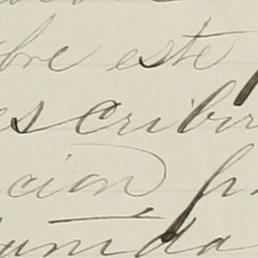 bre este
escribir
cion
unida